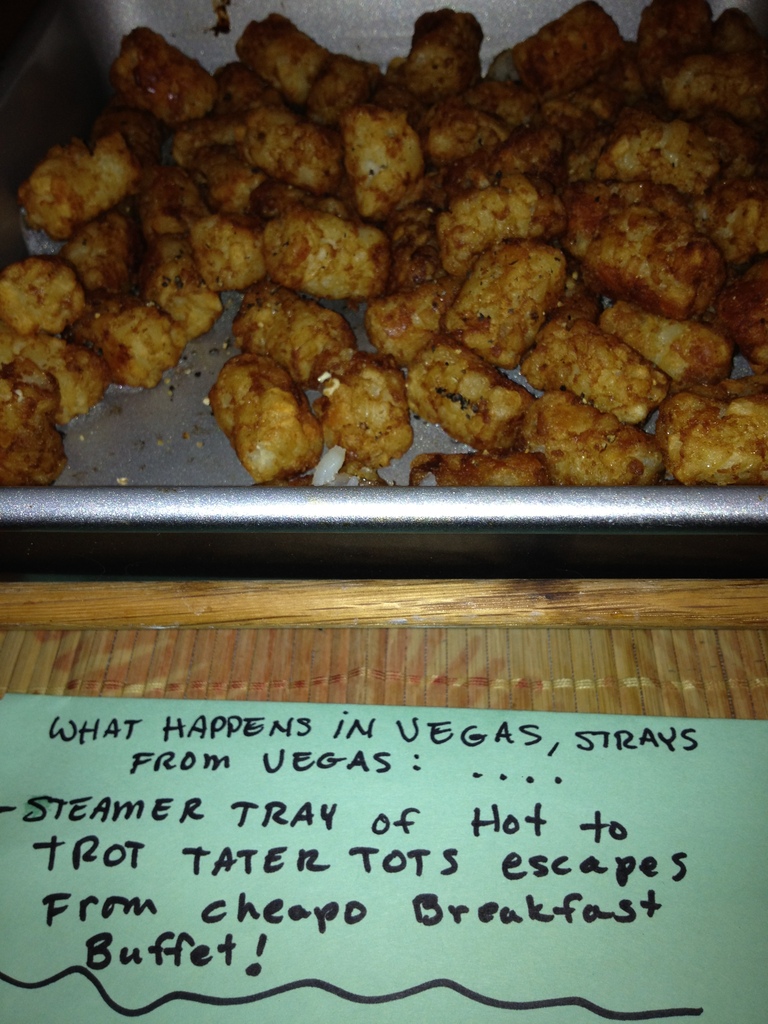 WHAT HAPPENS iN VEGAS, STRAYS
FROM VEGAS: ....
-STEAMER TRAY of Hot to
TROT TATER TOTS escapes
From cheapo Breakfast
Buffet!